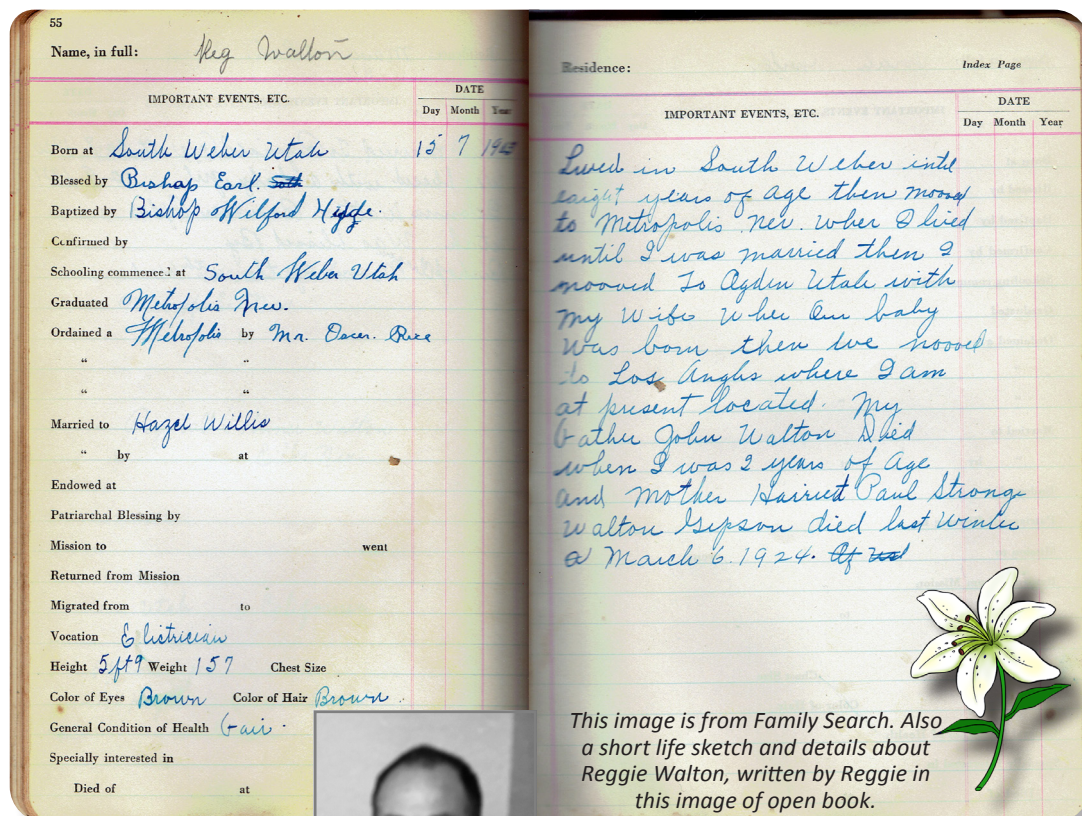 55
Name, in full: Reg Walton
IMPORTANT EVENTS, ETC.
DATE
Day Month Year
Born at South Weber Utah 15 7
Blessed by Bishop Earl.
Baptized by Bishop Wilford
Confirmed by
Schooling commenced at South Weber Utah
Graduated Metropolis Nev.
Ordained a Metropolis by Mr. Oscer. Rice
" "
" "
Married to Hazel Willis
" by at
Endowed at
Patriarchal Blessing by
Mission to went
Returned from Mission
Migrated from to
Vocation Elictrician
Height 5ft9 Weight 157 Chest Size
Color of Eyes Brown Color of Hair Brown
General Condition of Health Fair
Specially interested in
Died of at
Residence:
Index Page
IMPORTANT EVENTS, ETC.
DATE
Day Month Year
Lived in South Weber intil
eaight years of age then mooved
to Metropolis Nev. wher I lived
until I was married then I
mooved To Ogden Utah with
my Wife Wher Our baby
was born then We mooved
to Los Angles where I am
at present located. My
father John Walton Died
when I was 2 years of Age
and Mother Hairiet Paul Strong
Walton Gipson died last Winter
March 6. 1924.
This image is from Family Search. Also
a short life sketch and details about
Reggie Walton, written by Reggie in
this image of open book.